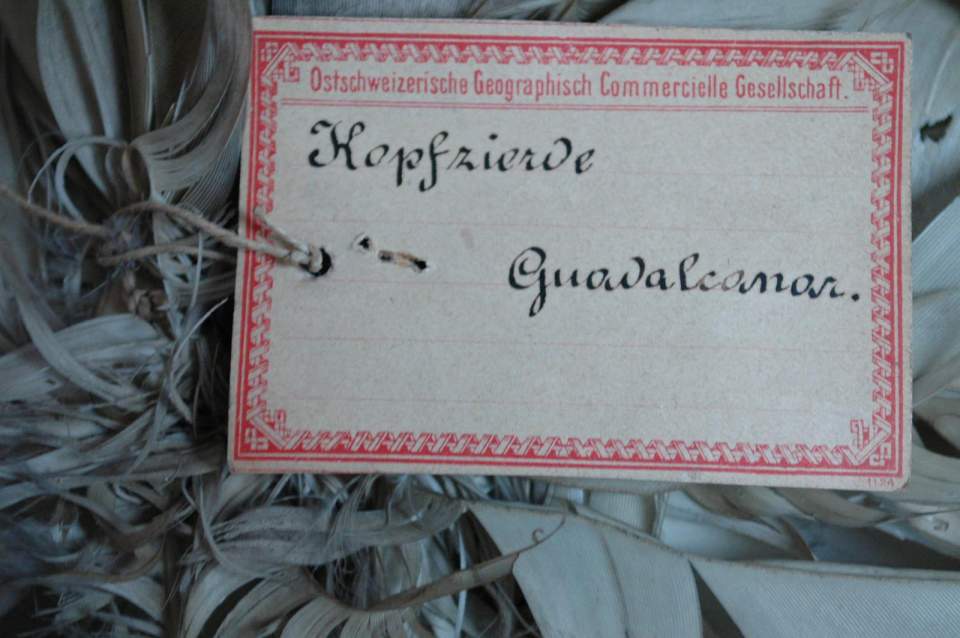 Ostschweizerische Geographisch Commercielle Gesellschaft.
Kopfzierde
Guadalcanar.
1124